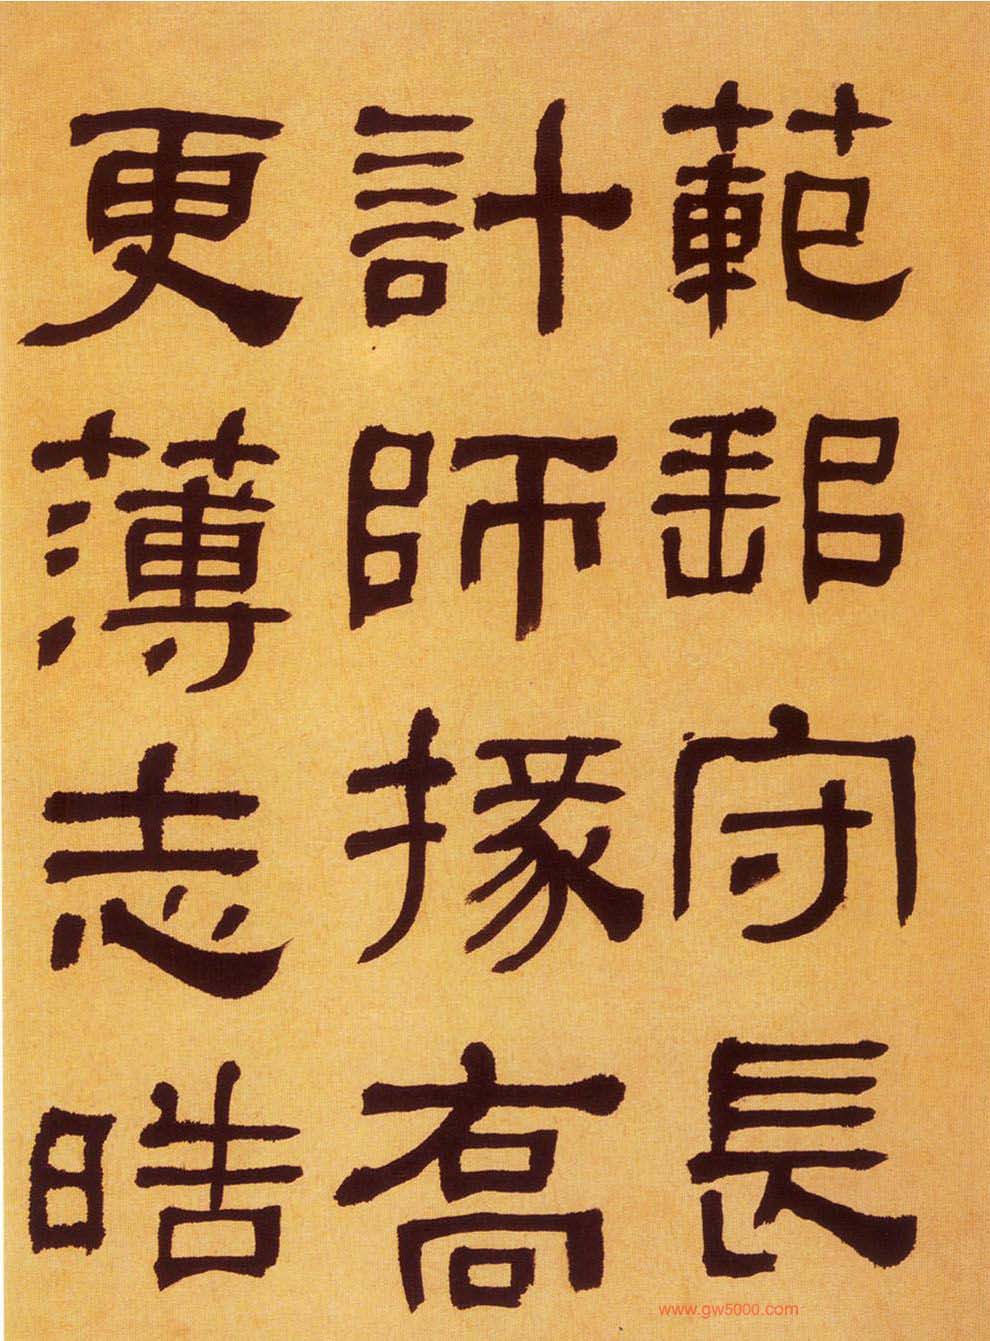 範郵守長
計師掾喬
更薄志晧
www.gw5000.com